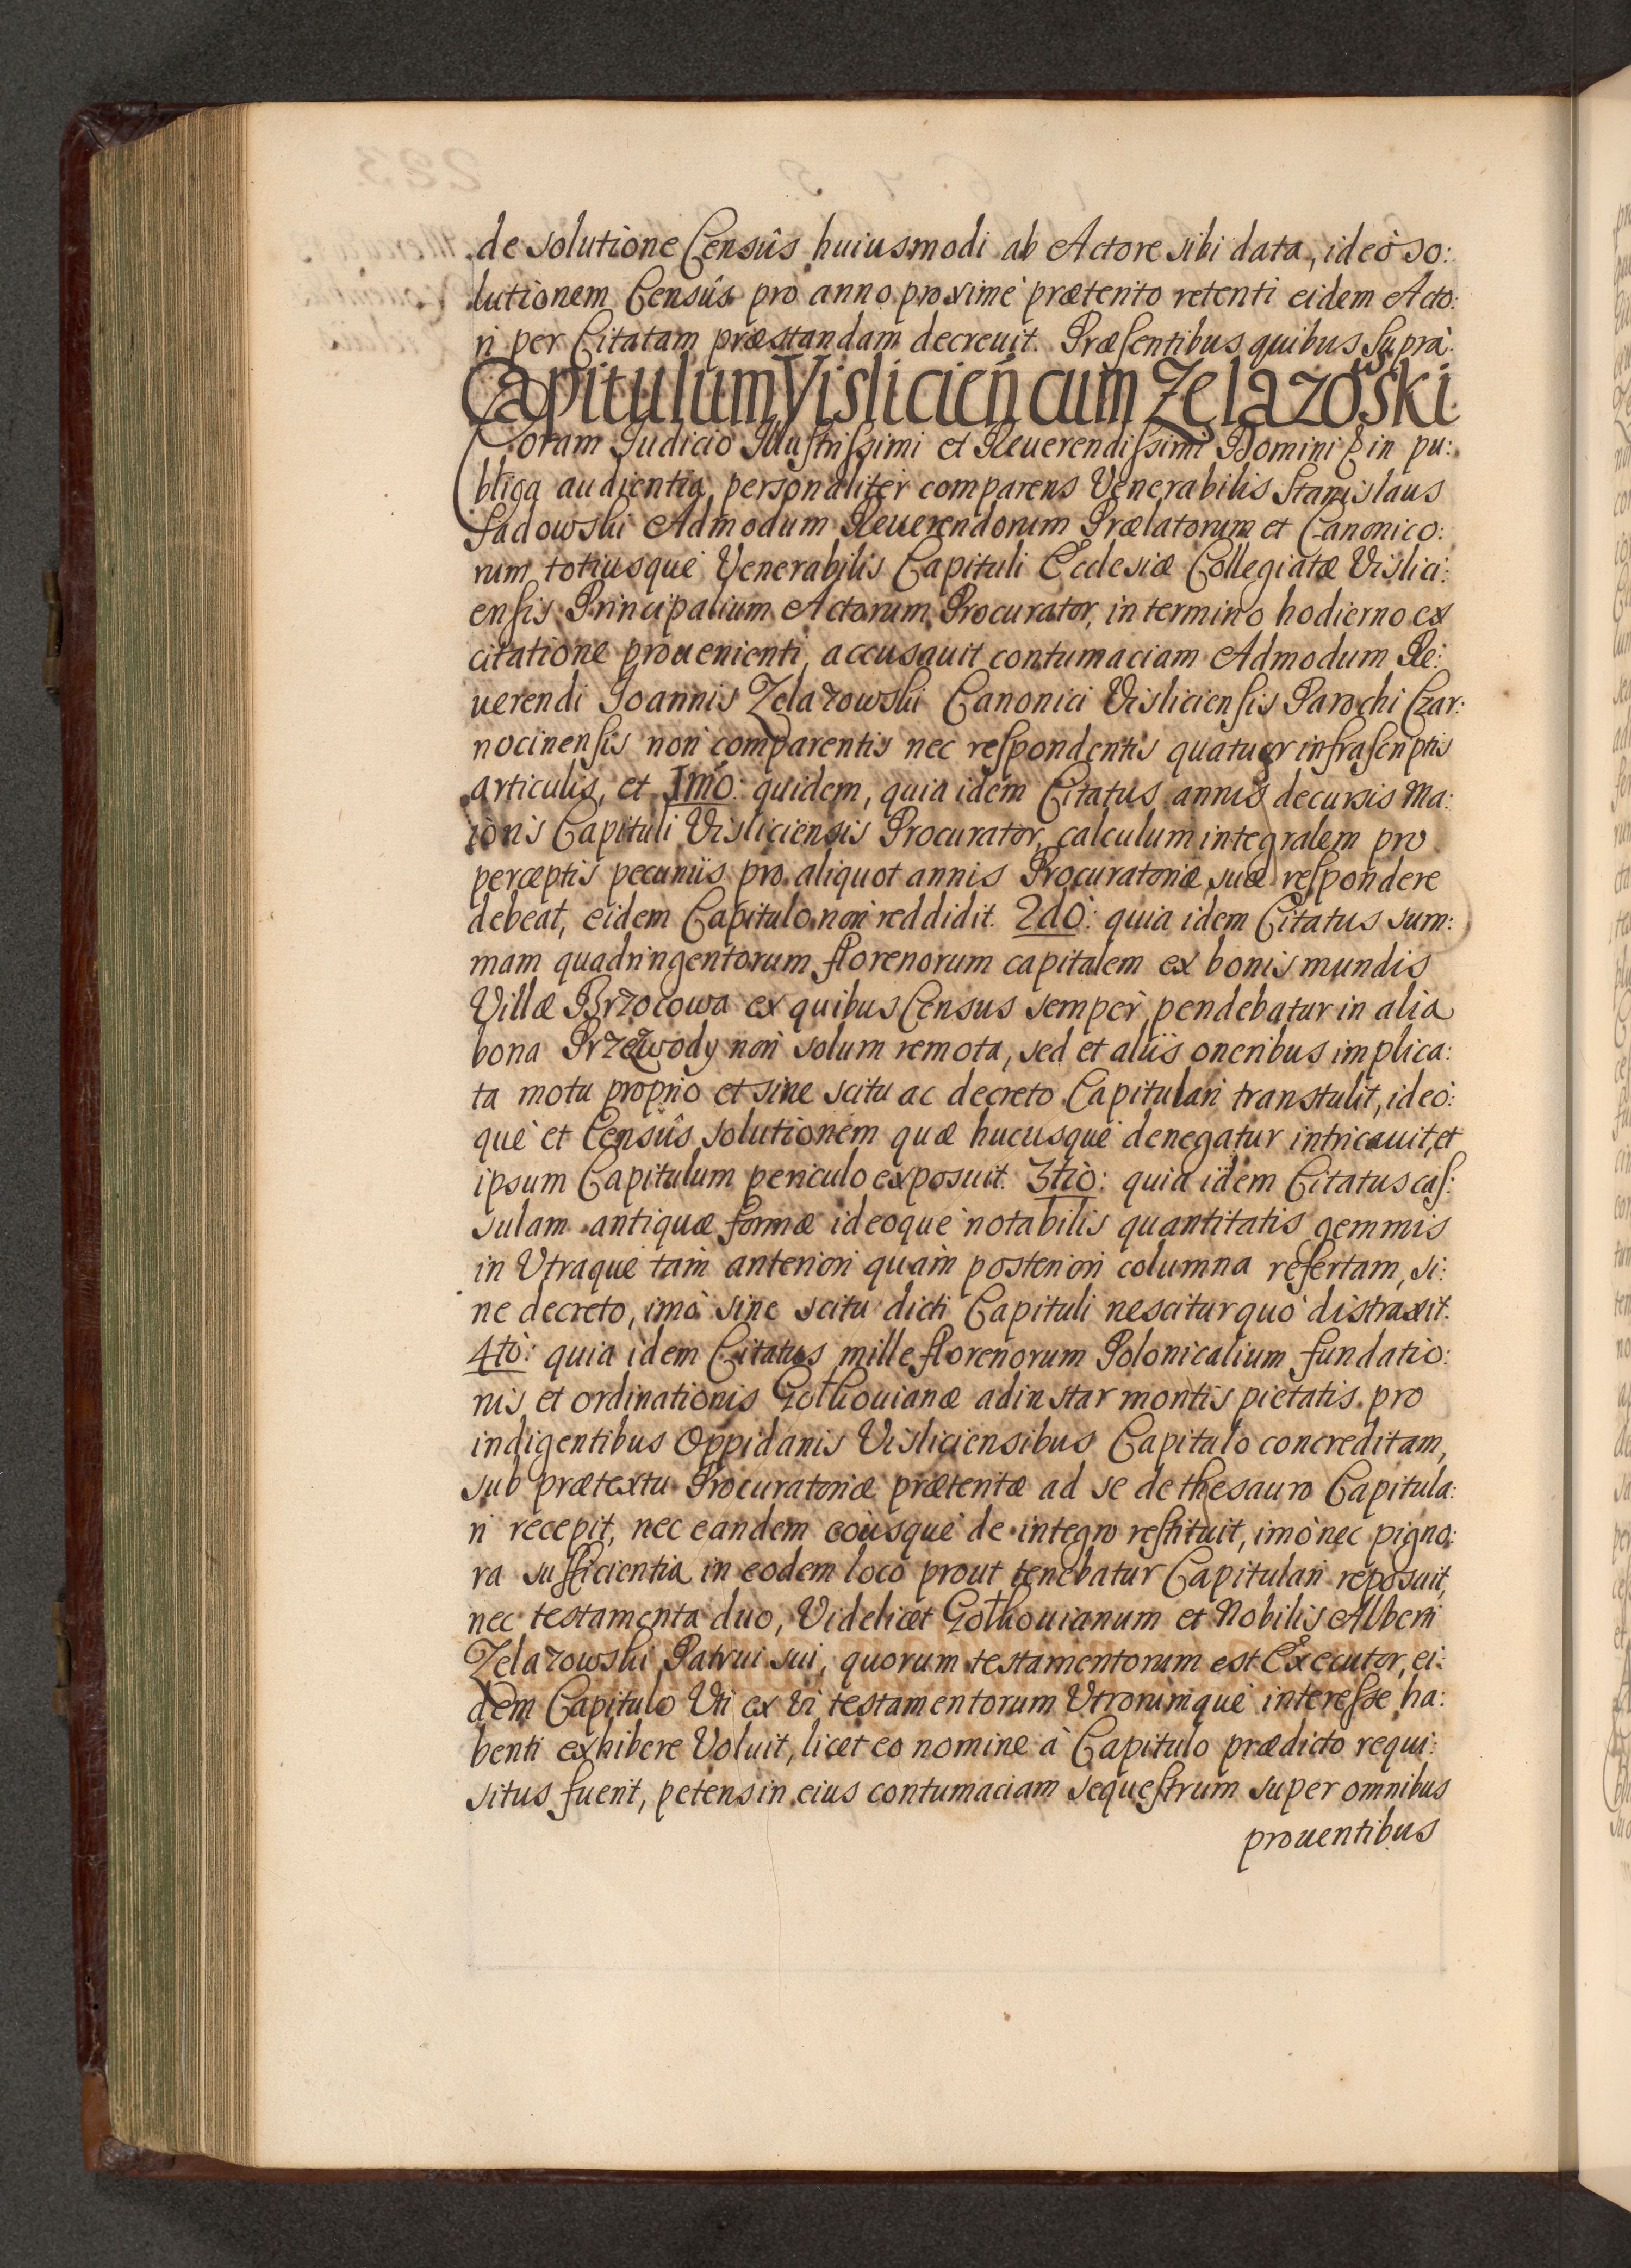 de solutione Censûs huiusmodi ab Actore sibi data, ideò so:
lutionem Censûs pro anno proximè prætento retenti eidem Acto:
ri per Citatam præstandam decreuit. Præsentibus quibus suprà.
Capitulum Vislicieñ cum Zelazowski
Coram Iudicio Illustrissimi et Reuerendissimi Domini & in pu:
blica audientia personaliter comparens Venerabilis Stanislaus
Sadowski Admodum Reuerendorum Prælatorum et Canonico:
rum totiusque Venerabilis Capituli Ecclesiæ Collegiatæ Vislici:
ensis Principalium Actorum Procurator, in termino hodierno ex
citatione prouenienti, accusauit contumaciam Admodum Re:
uerendi Ioannis Zelazowski Canonici Visliciensis Parochi Czar:
nocinensis non comparentis nec respondentis quatuor infrascriptis
articulis, et Imò: quidem, quia idem Citatus annis decursis Ma:
ioris Capituli Visliciensis Procurator, calculum integralem pro
perceptis pecuniis pro aliquot annis Procuratoriæ suæ respondere
debeat, eidem Capitulo non reddidit. 2dò: quia idem Citatus sum:
mam quadringentorum florenorum capitalem ex bonis mundis
Villæ Brzocowa ex quibus Census semper pendebatur in alia
bona Przewody non solum remota, sed et aliis oneribus implica:
ta motu proprio et sine scitu ac decreto Capitulari transtulit, ideò:
què et Censûs solutionem quæ hucusquè denegatur intricauit, et
ipsum Capitulum periculo exposuit. 3tiò: quia idem Citatus cas:
sulam antiquæ formæ ideoquè notabilis quantitatis gemmis
in Vtraquè tàm anteriori quàm posteriori columna refertam, si:
ne decreto, imò sine scitu dicti Capituli nescitur quò distraxit.
4tò: quia idem Citatus mille florenorum Polonicalium fundatio:
nis et ordinationis Gothouianæ ad instar montis pietatis pro
indigentibus Oppidanis Visliciensibus Capitulo concreditam,
sub prætextu Procuratoriæ prætentæ ad se de thesauro Capitula:
ri recepit, nec eandem eousquè de integro restituit, imò nec pigno:
ra sufficientia in eodem loco prout tenebatur Capitulari reposuit,
nec testamenta duo, Videlicet Gothouianum et Nobilis Alberti
Zelazowski Patrui sui, quorum testamentorum est Executor, ei:
dem Capitulo Vti ex vi testamentorum Vtrorumquè interesse ha:
benti exhibere Voluit, licet eo nomine à Capitulo prædicto requi:
situs fuerit, petens in eius contumaciam sequestrum super omnibus
prouentibus